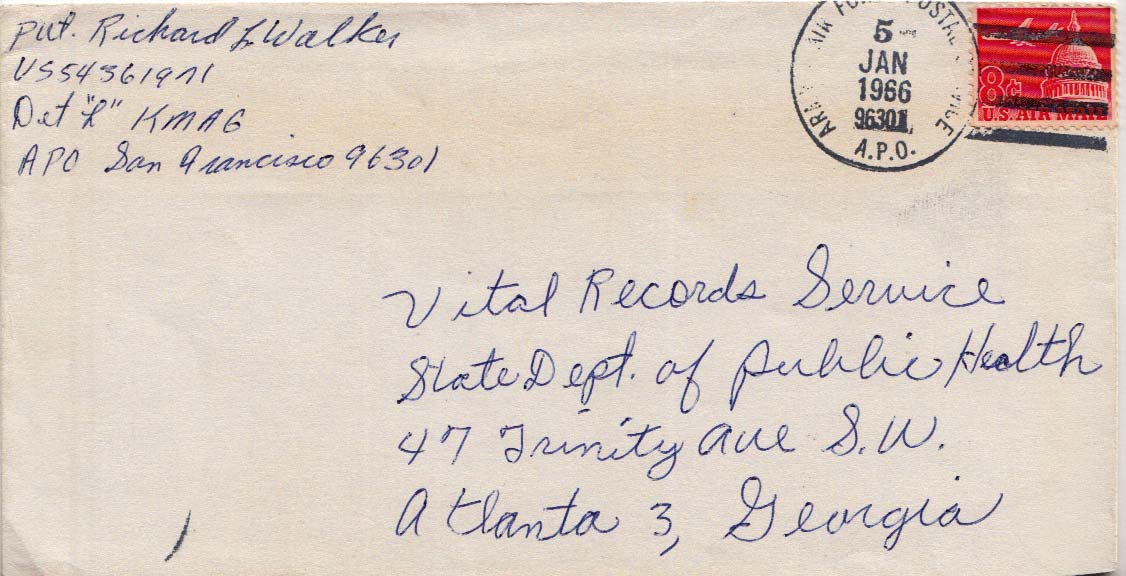 Pvt. Richard L Walker
US54361971
Det "L" KMAG
APO San Francisco 96301
ARMY AIR FORCE POSTAL SERVICE
5
JAN
1966
96301
A.P.O.
8¢
U.S. AIR MAIL
Vital Records Service
State Dept. of Public Health
47 Trinity Ave S.W.
Atlanta 3, Georgia